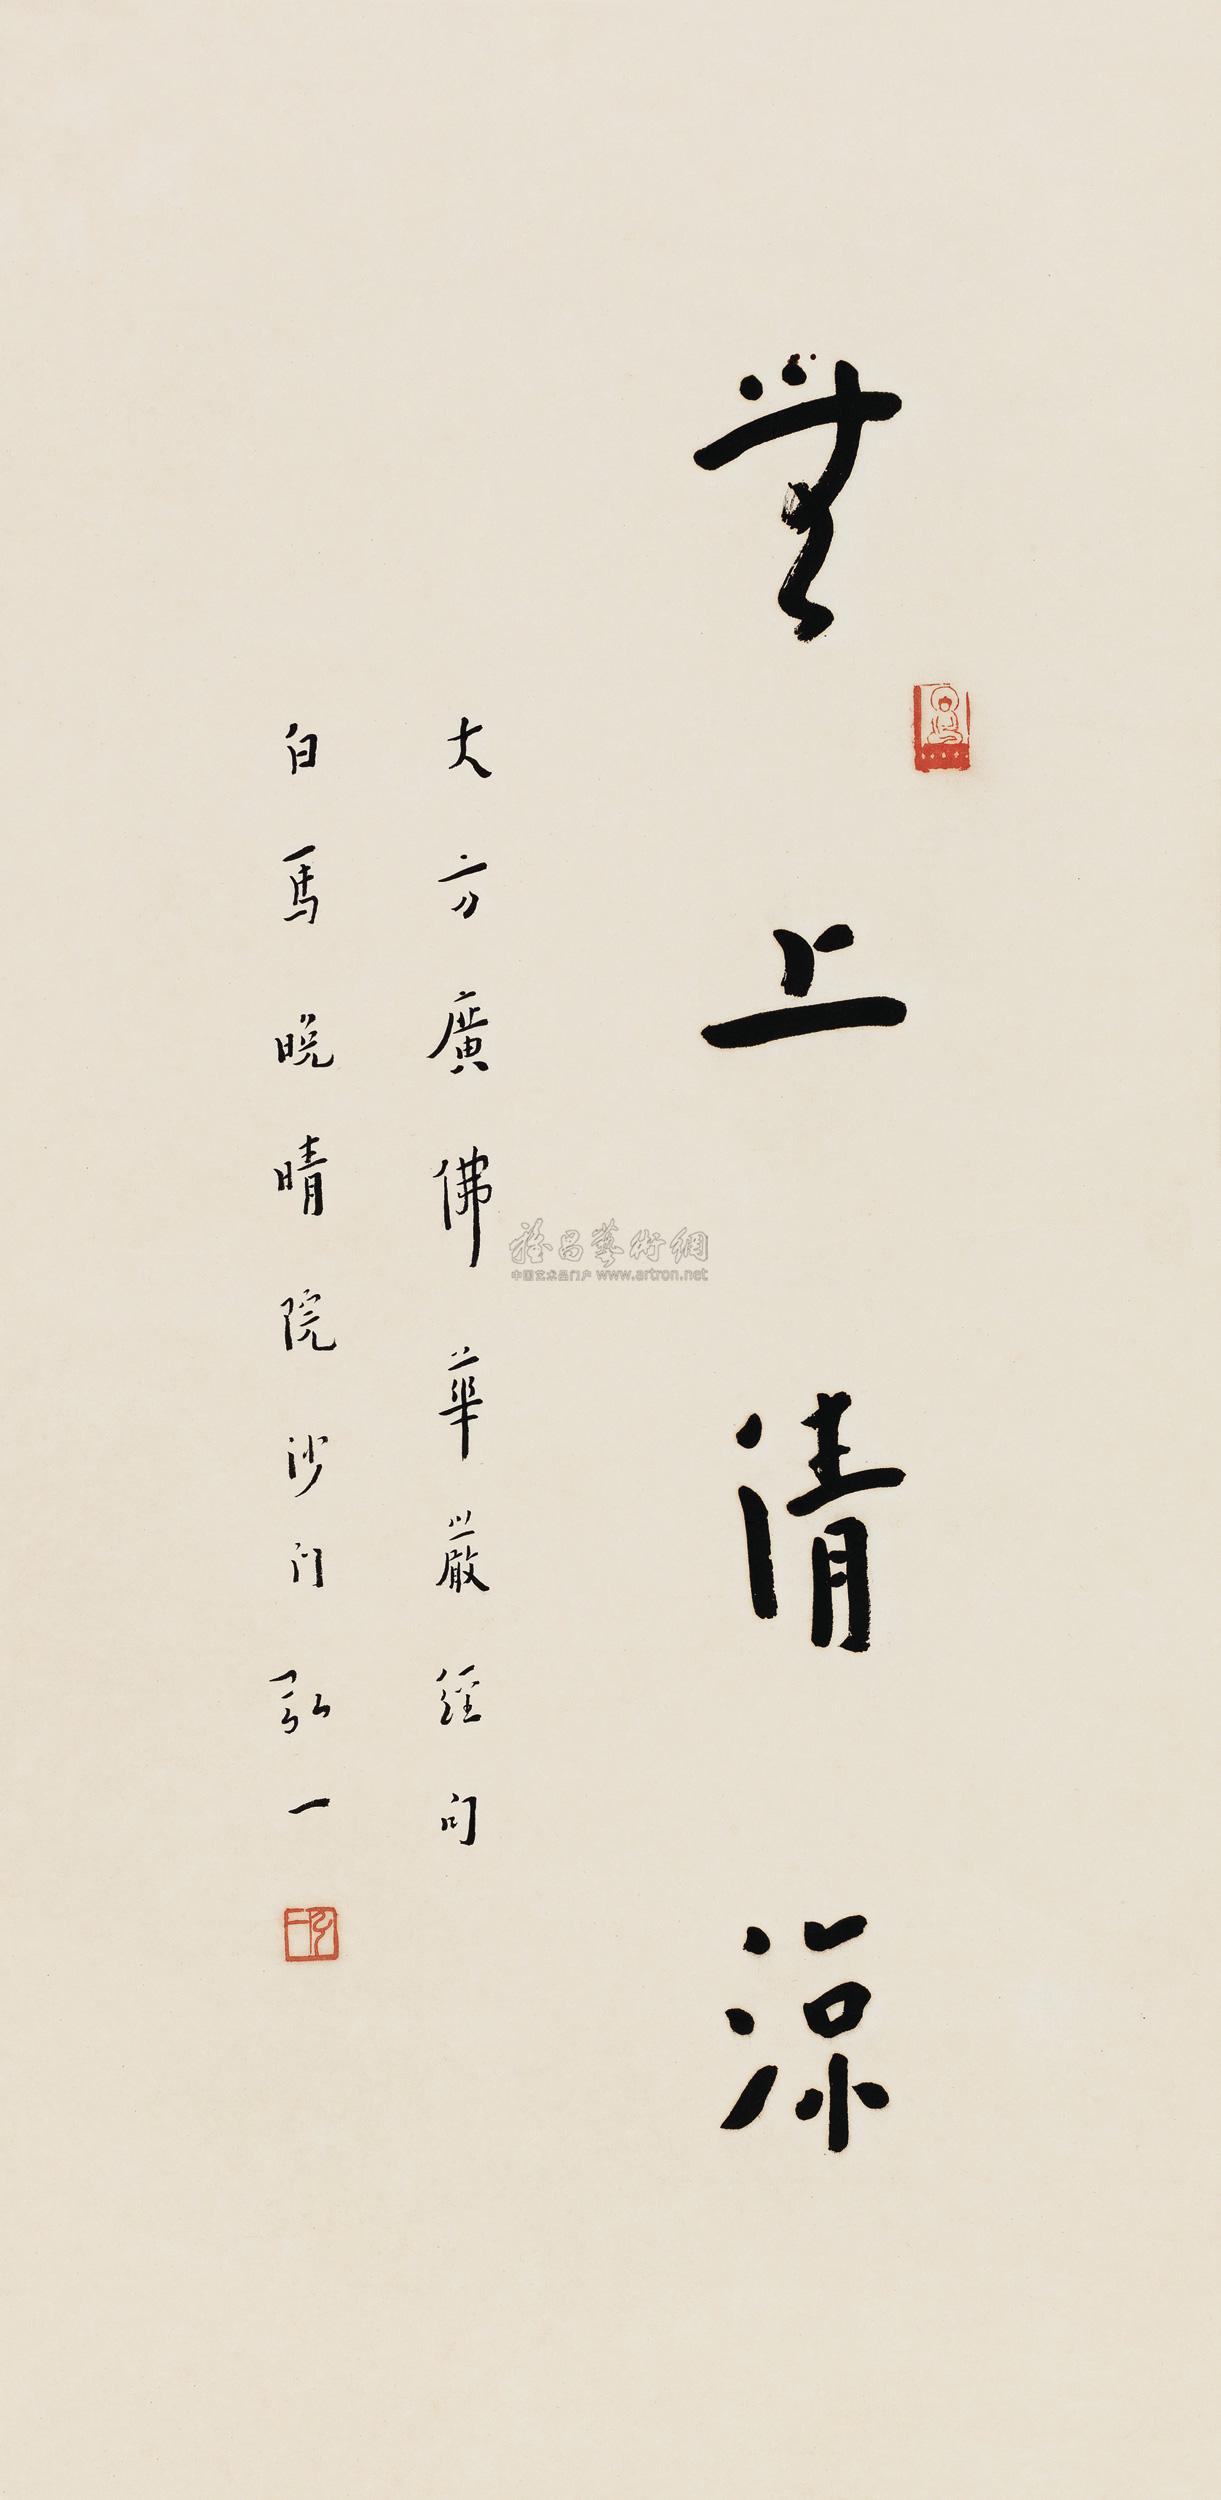 無上清涼
大方廣佛華嚴經句
白馬晚晴院沙门弘一
雅昌藝術網
中国艺术品门户 www.artron.net